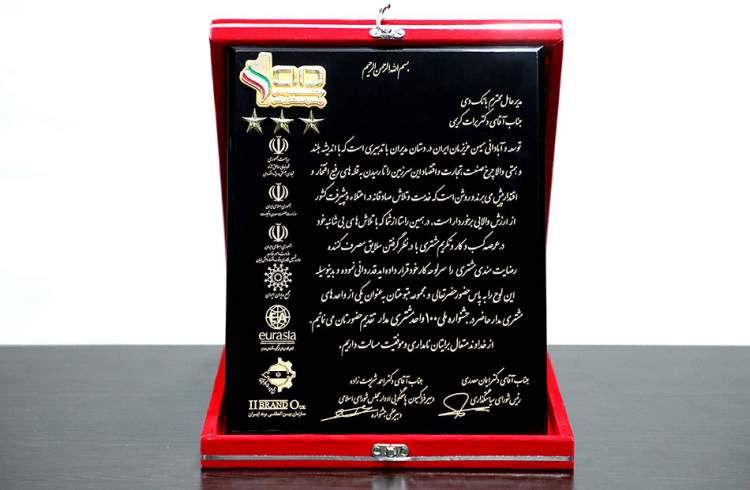 بسم الله الرحمن الرحیم
مدیر عامل محترم بانک دی
جناب آقای دکتر برات کریمی
توسعه و آبادانی میهن عزیزمان ایران در دستان مدیران با تدبیری است که با اندیشه بلند
و همتی والا چرخ صنعت، تجارت و اقتصاد این سرزمین را تا رسیدن به قله های رفیع افتخار و
اقتدار پیش می برند و روشن است که خدمت و تلاش صادقانه در اعتلاء و پیشرفت کشور
از ارزش والایی برخوردار است. در همین راستا از شما که با تلاش های بی شائبه خود
در عرصه کسب و کار و تکریم مشتری با در نظر گرفتن سلایق مصرف کننده
رضایت مندی مشتری را سرلوحه کار خود قرار داده اید قدردانی نموده و بدینوسیله
این لوح را به پاس حضور حضرتعالی و مجموعه متبوعتان به عنوان یکی از واحدهای
مشتری مدار حاضر در جشنواره ملی ۱۰۰ واحد مشتری مدار تقدیم حضورتان می نمائیم.
از خداوند متعال برایتان نامداری و موفقیت مسألت داریم.
جناب آقای دکتر احمد شریعت زاده
دبیر فراکسیون پاسخگویی ادوار مجلس شورای اسلامی
دبیر علمی جشنواره
جناب آقای دکتر ایمان
رئیس شورای سیاستگذاری
eurasia
II BRAND Our
سازمان بین المللی برند ایران